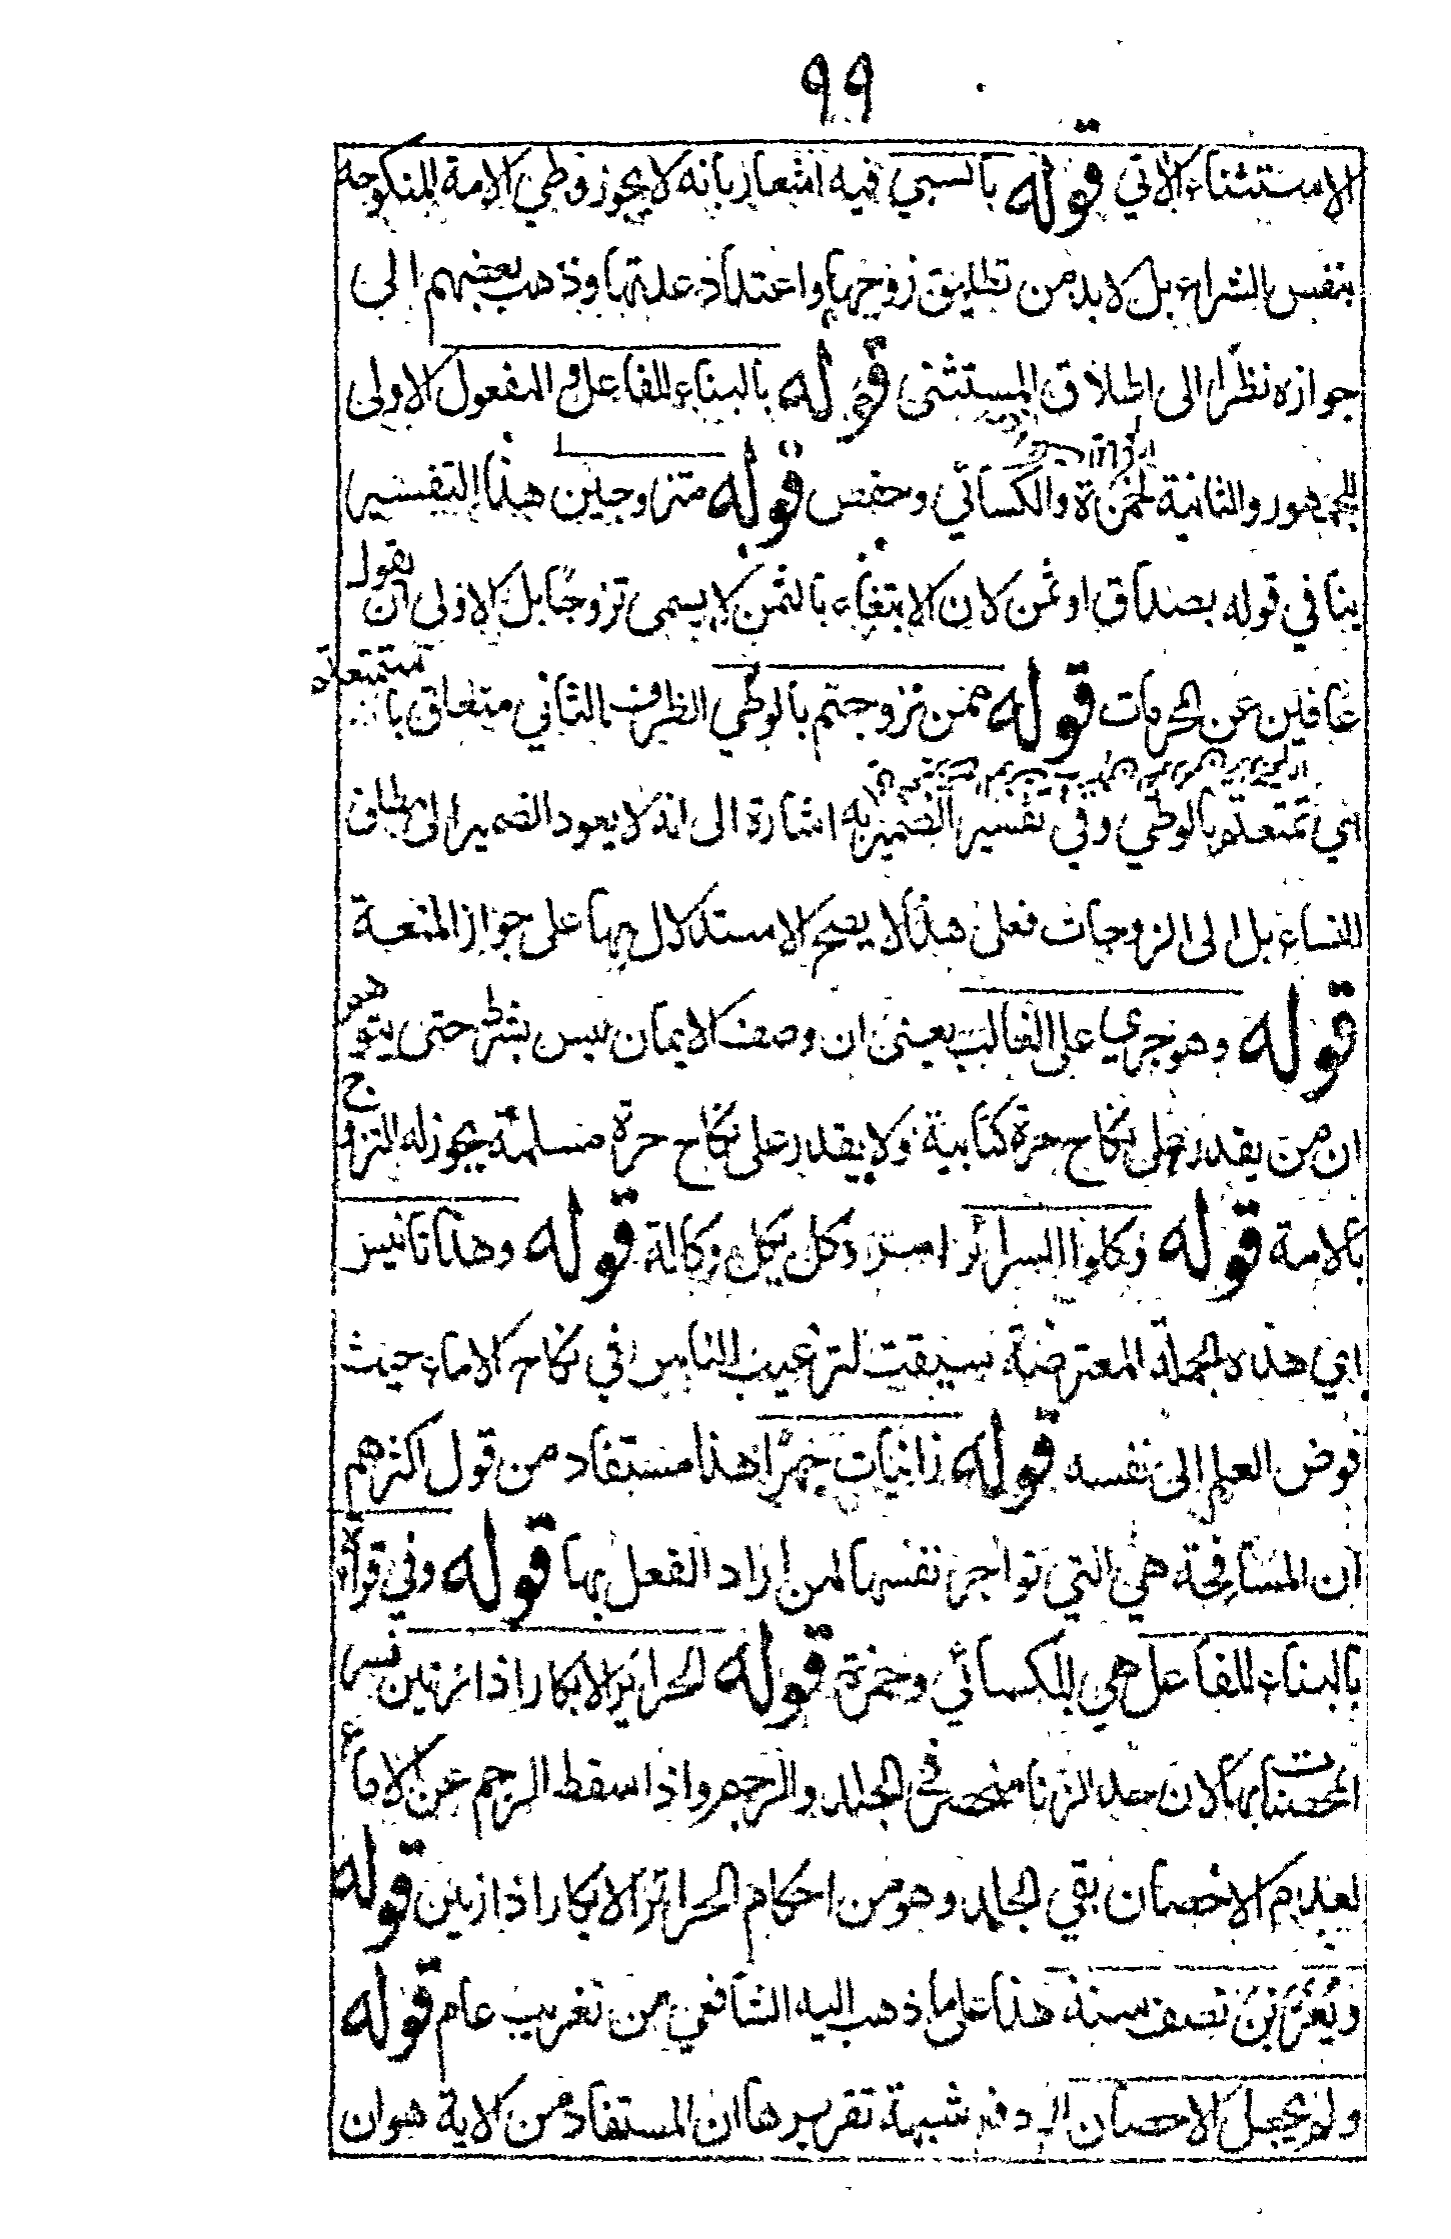 ٩٩
الاستثناء الاتي قوله بالسبي فيه اشعار بانه لا يجوز وطي الامة المنكوحة
بنفس الشراء بل لا بد من تطليق زوجها واعتداد عدتها وذهب بعضهم الى
جوازه نظرا الى اطلاق المستثنى قوله بالبناء للفاعل و المفعول الاولى
للجمهور والثانية لحمزة والكسائي وحفص قوله متزوجين هذا التفسير
ينافي قوله بصداق او ثمن لان الابتغاء بالثمن لا يسمى تزوجا بل الاولى ان يقول
غافلين عن المحرمات قوله ممن تزوجتم بالوطي الظرف الثاني متعلق با ستمتعتم
اي تمتعتم بالوطي وفي تفسير الضمير به اشارة الى انه لا يعود الضمير الى مطلق
النساء بل الى الزوجات فعلى هذا لا يصح الاستدلال بها على جواز المتعة
قوله وهو جري على الغالب يعني ان وصف الايمان ليس بشرط حتى يتوهم
ان من يقدر على نكاح حرة كتابية ولا يقدر على نكاح حرة مسلمة يجوز له التزوج
بالامة قوله وكلوا السرائر امر من وكل يكل وكالة قوله وهذا تانيس
اي هذه الجملة المعترضة سيقت لترغيب الناس في نكاح الاماء حيث
فوض العلم الى نفسه قوله زانيات جهرا هذا مستفاد من قول اكثرهم
ان المسافحة هي التي تواجر نفسها لمن اراد الفعل بها قوله وفي قراءة
بالبناء للفاعل هي للكسائي وحمزة قوله الحرائر الابكار اذا زنين فسر
المحصنات بها لان حد الزنا منحصر في الجلد والرجم واذا سقط الرجم عن الاماء
لعدم الاحصان بقي الجلد وهو من احكام الحرائر الابكار اذا زنين قوله
ويغربن نصف سنة هذا على ما ذهب اليه الشافعي من تغريب عام قوله
ولم يجعل الاحصان الخ دفع شبهة تقريرها ان المستفاد من الاية هو ان